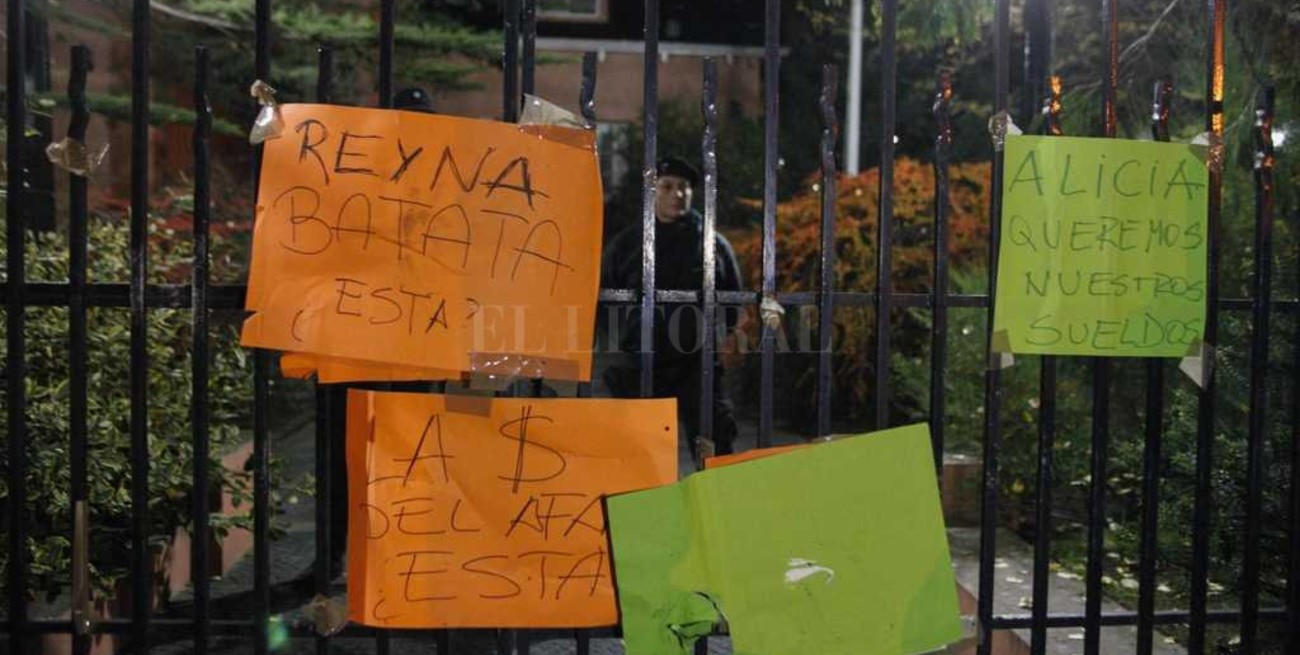 REYNA
BATATA
¿ESTA?
LA $
DEL AFA
¿ESTA
ALiCiA
QUEREMOS
NUESTROS
SUELDOS
EL LITORAL